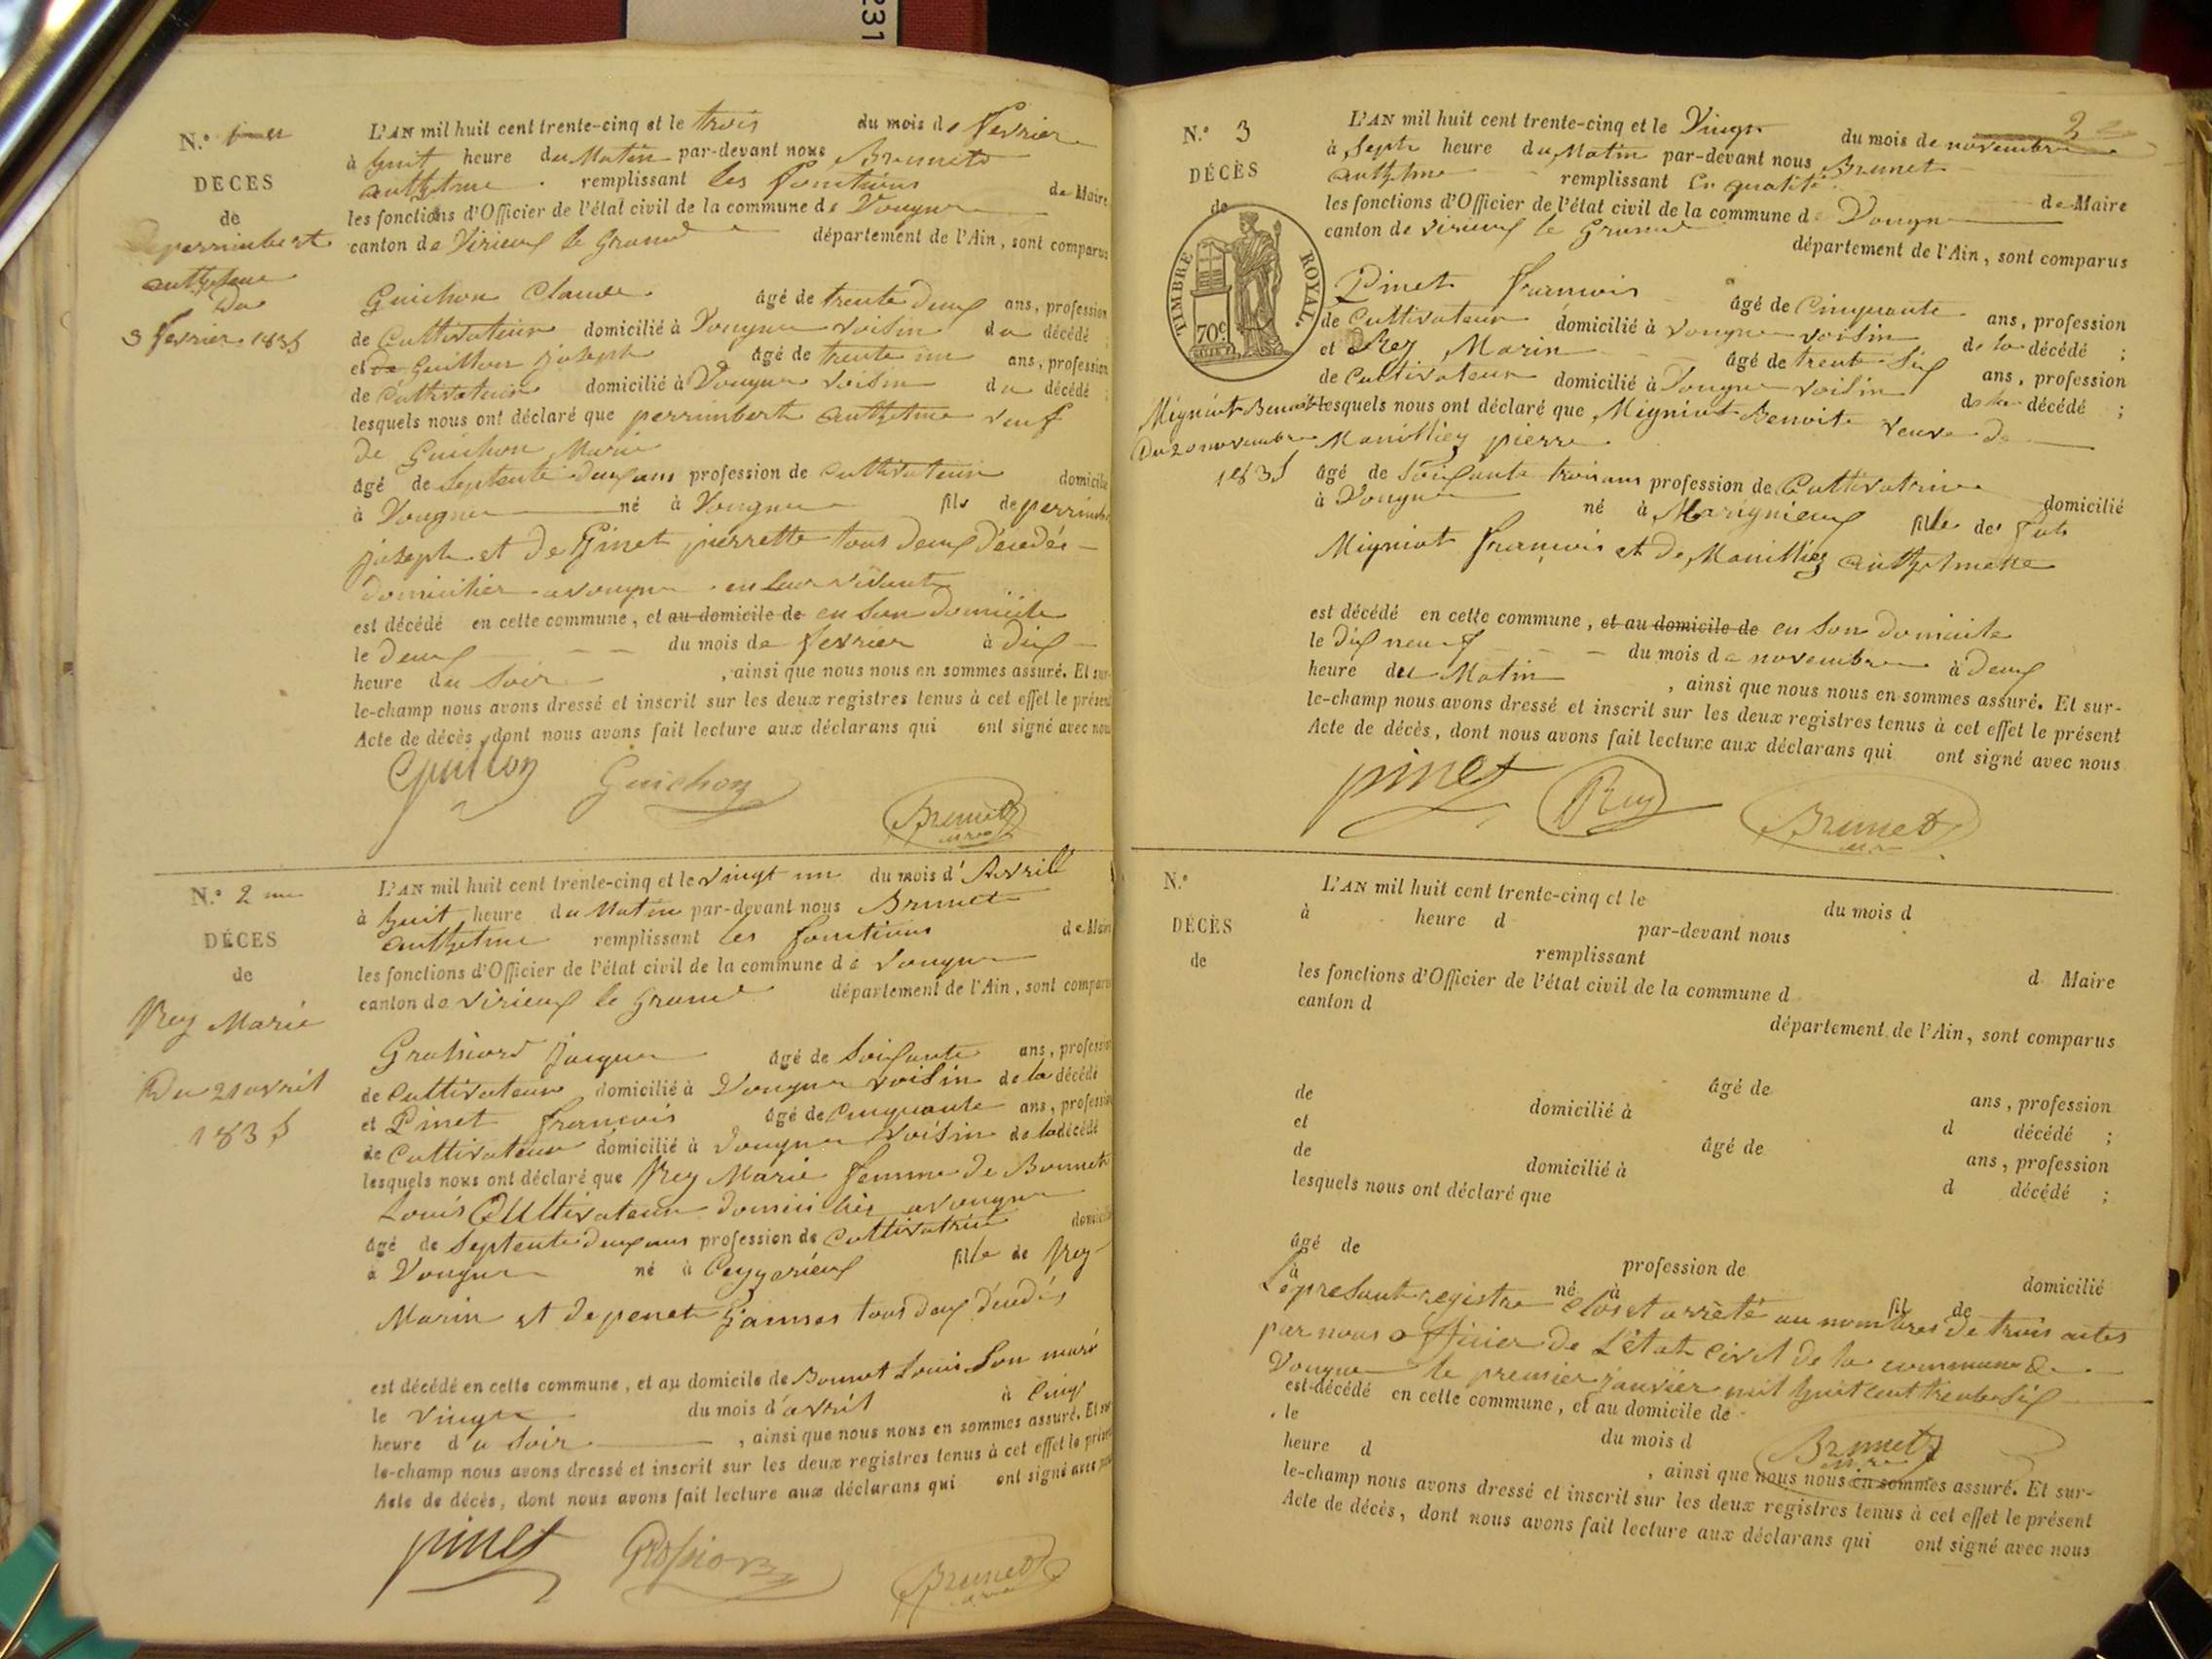 231
N.° 1er
DÉCES
de
perrimbert
anthelme
Du
3 fevrier 1835
L'AN mil huit cent trente-cinq et le trois du mois de fevrier
à huit heure du Matin par-devant nous Brunet
anthelme remplissant les fonctions de Maire
les fonctions d'Officier de l'état civil de la commune de Vongne
canton de Virieux le Grand département de l'Ain, sont comparus
Guichon Claude âgé de trente deux ans, profession
de Cultivateur domicilié à Vongne voisin du décédé
et de Guillon joseph âgé de trente un ans, profession
de Cultivateur domicilié à Vongne voisin du décédé ;
lesquels nous ont déclaré que perrimbert anthelme veuf
de Guichon Marie
âgé de septente deux ans profession de cultivateur domicilié
à Vongne né à Vongne fils de perrimbert
joseph et de pinet pierrette tous deux décédés
domicilier a vongne en leur vivant
est décédé en cette commune, et au domicile de en son domicile
le deux du mois de fevrier à dix
heure du soir , ainsi que nous nous en sommes assuré. Et sur-
le-champ nous avons dressé et inscrit sur les deux registres tenus à cet effet le présent
Acte de décès, dont nous avons fait lecture aux déclarans qui ont signé avec nous
Guillon Guichon
Brunet
N.° 2 me
DÉCES
de
Rey Marie
Du 21 avril
1835
L'AN mil huit cent trente-cinq et le vingt un du mois d'Avril
à huit heure du Matin par-devant nous Brunet
anthelme remplissant les fonctions de Maire
les fonctions d'Officier de l'état civil de la commune de Vongne
canton de Virieux le Grand département de l'Ain, sont comparus
jacques âgé de soixante ans, profession
de Cultivateur domicilié à Vongne voisin de la décédé
et Pinet francois âgé de Cinquante ans, profession
de Cultivateur domicilié à Vongne voisin de la décédé
lesquels nous ont déclaré que Rey Marie femme de Bonnet
Louis Cultivateur domicilier a vongne
âgé de septente deux ans profession de cultivatrice domicilié
à Vongne né à Ceyzerieux fille de Rey
Marin et de penet tous deux décédés
est décédé en cette commune, et au domicile de Bonnet Louis son mari
le vingt du mois d'avril à Cinq
heure du soir , ainsi que nous nous en sommes assuré. Et sur-
le-champ nous avons dressé et inscrit sur les deux registres tenus à cet effet le présent
Acte de décès, dont nous avons fait lecture aux déclarans qui ont signé avec nous
pinet
Brunet
2
N.° 3
DÉCÈS
de
TIMBRE ROYAL.
70c
Migniot Benoite
Du 20 novembre
1835
L'AN mil huit cent trente-cinq et le Vingt du mois de novembre
à Sept heure du Matin par-devant nous Brunet
anthelme remplissant en qualité de Maire
les fonctions d'Officier de l'état civil de la commune de Vongne
canton de Virieux le Grand département de l'Ain, sont comparus
Pinet francois âgé de Cinquante ans, profession
de Cultivateur domicilié à vongne voisin de la décédé ;
et Rey Marin âgé de trente six ans, profession
de Cultivateur domicilié à Vongne voisin de la décédé ;
lesquels nous ont déclaré que Migniot Benoite veuve de
Manilliez pierre
âgé de soixante trois ans profession de Cultivatrice domicilié
à Vongne né à Marignieux fille de fut
Migniot francois et de Manilliez anthelmette
est décédé en cette commune, et au domicile de en son domicile
le dix neuf du mois de novembre à deux
heure du Matin , ainsi que nous nous en sommes assuré. Et sur-
le-champ nous avons dressé et inscrit sur les deux registres tenus à cet effet le présent
Acte de décès, dont nous avons fait lecture aux déclarans qui ont signé avec nous
pinet Rey Brunet
N.°
DÉCÈS
de
L'AN mil huit cent trente-cinq et le du mois d
à heure d par-devant nous
remplissant d Maire
les fonctions d'Officier de l'état civil de la commune d
canton d département de l'Ain, sont comparus
âgé de ans, profession
de domicilié à d décédé ;
et âgé de ans, profession
de domicilié à d décédé ;
lesquels nous ont déclaré que
âgé de profession de domicilié
à né à fil de
Le present registre clos et arrèté au nombres de trois actes
par nous officier de L'état Civil de la commune de
Vongne le premier janvier mil huit cent trente six
est décédé en cette commune, et au domicile de
le du mois d
Brunet
heure d , ainsi que nous nous en sommes assuré. Et sur-
le-champ nous avons dressé et inscrit sur les deux registres tenus à cet effet le présent
Acte de décès, dont nous avons fait lecture aux déclarans qui ont signé avec nous